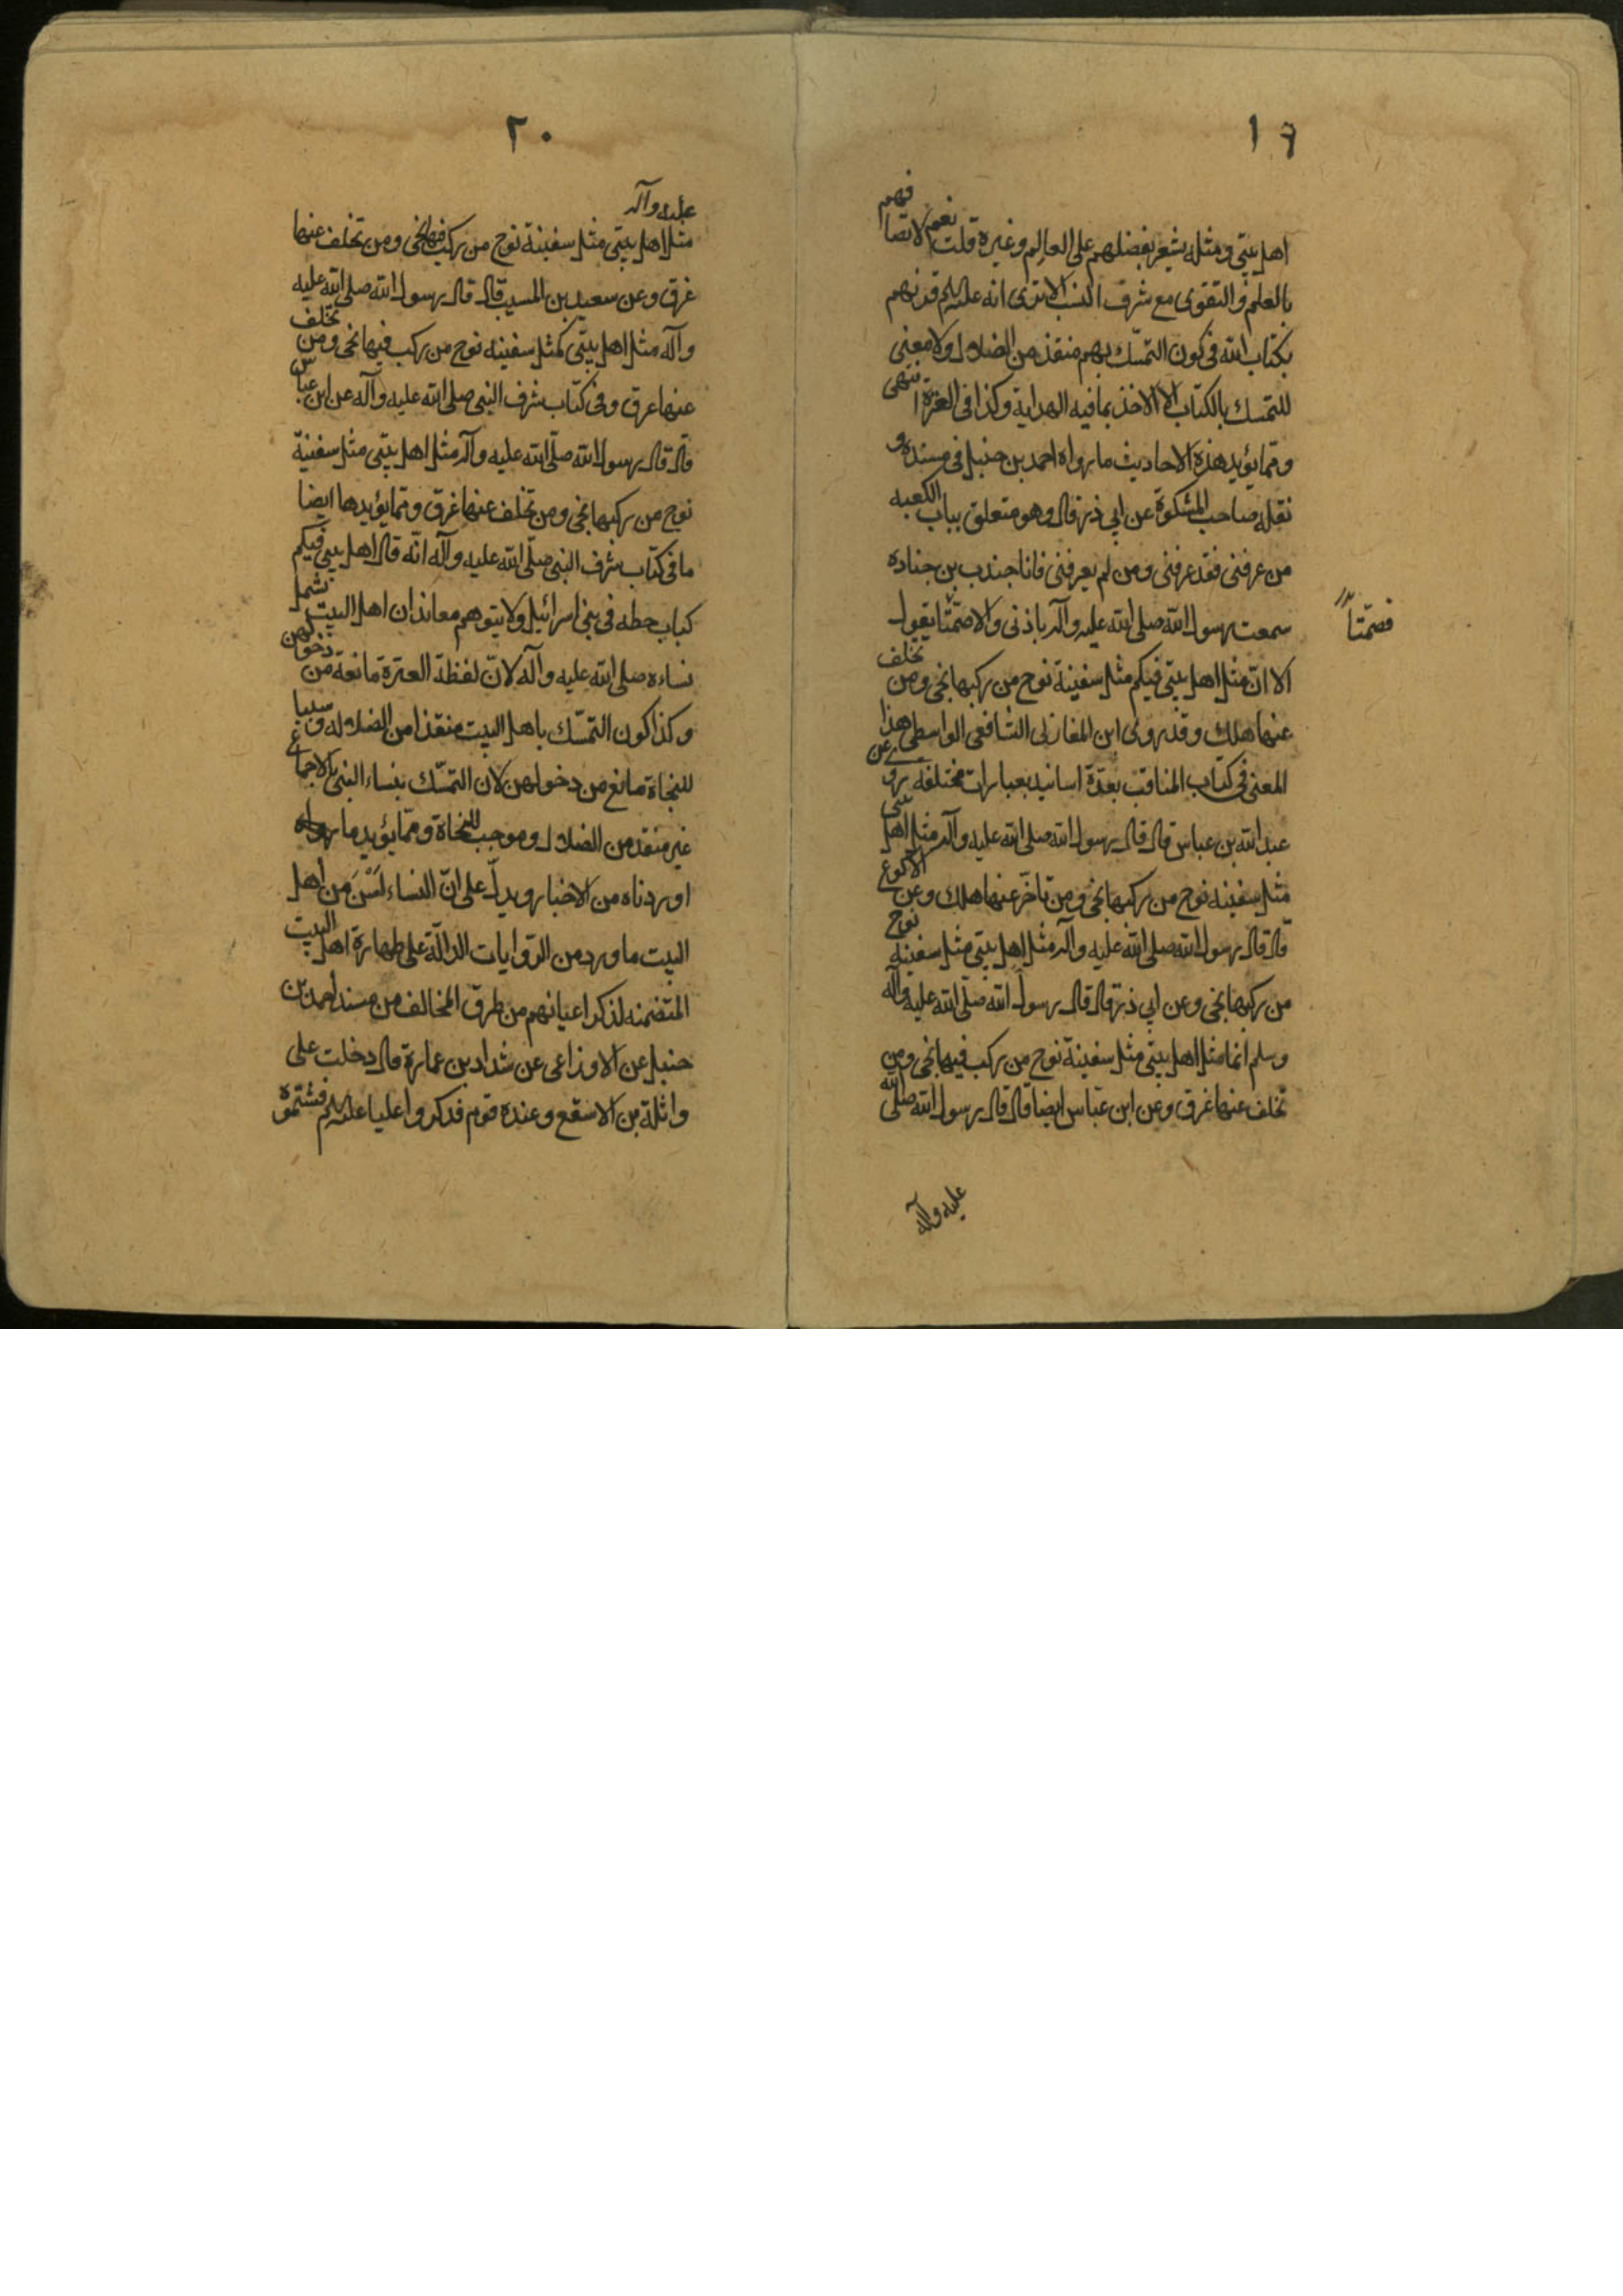 ١٩
اهل بيتي ومثله يشعر بفضلهم على العالِم وغيره قلت نعم لاتصافهم
بالعلم والتقوى مع شرف النسب الا ترى انه عليه السلم قرنهم
بكتاب الله في كون التمسّك بهم منقذ من الضلال ولا معنى
للتمسك بالكتاب الا الاخذ بما فيه الهداية وكذا في العترة انتهى
ومما يؤيد هذه الاحاديث ما رواه احمد بن حنبل في مسنده و
نقله صاحب المشكوة عن ابي ذر قال وهو متعلق بباب الكعبه
من عرفنى فقد عرفنى ومن لم يعرفنى فانا جندب بن جناده
سمعت رسول الله صلى الله عليه وآله باذنى والا صمّتا يقول
فصمّتا
الا انّ مثل اهل بيتي فيكم مثل سفينة نوح من ركبها نجى ومن تخلف
عنها هلك وقد روى ابن المغازلى الشافعى الواسطى هذا
المعنى في كتاب المناقب بعدّة اسانيد بعبارات مختلفه روى عن
عبد الله بن عباس قال قال رسول الله صلى الله عليه وآله مثل اهل بيتى
مثل سفينه نوح من ركبها نجى ومن تاخّر عنها هلك وعن الاكوع
قال قال رسول الله صلى الله عليه وآله مثل اهل بيتي مثل سفينه نوح
من ركبها نجى وعن ابي ذر قال قال رسول الله صلّى الله عليه وآله
وسلم انما مثل اهل بيتي مثل سفينة نوح من ركب فيها نجى ومن
تخلف عنها غرق وعن ابن عبّاس ايضا قال قال رسول الله صلى الله
عليه وآله
٢٠
عليه وآله
مثل اهل بيتي مثل سفينة نوح من ركب فيها نجى ومن تخلف عنها
غرق وعن سعيد بن المسيب قال قال رسول الله صلى الله عليه
وآله مثل اهل بيتي كمثل سفينه نوح من ركب فيها نجى ومن تخلف
عنها غرق وفى كتاب شرف النبي صلى الله عليه وآله عن ابن عباس
قال قال رسول الله صلّى الله عليه وآله مثل اهل بيتي مثل سفينة
نوح من ركبها نجى ومن تخلف عنها غرق ومما يؤيدها ايضا
ما في كتاب شرف النبي صلّى الله عليه وآله انّه قال اهل بيتي فيكم
كباب حطه في بني اسرائيل ولا يتوهم معاند ان اهل البيت تشمل
نساءه صلى الله عليه وآله لانّ لفظة العترة مانعة من دخولهن
وكذا كون التمسّك باهل البيت منقذا من الضلاله وسببا
للنجاة مانع من دخولهن لان التمسّك بنساء النبي بالاجماع
غير منقذ من الضلال وموجب للنجاة ومما يؤيد ما
اوردناه من الاخبار ويدلّ على انّ النساء لَسْنَ من اهل
البيت ما ورد من الرّوايات الدالّة على طهارة اهل البيت
المتضمنه لذكر اعيانهم من طرق المخالف من مسند احمد بن
حنبل عن الاوزاعى عن شداد بن عمارة قال دخلت على
واثلة بن الاسقع وعنده قوم فذكروا عليا عليه السلم فشتموه